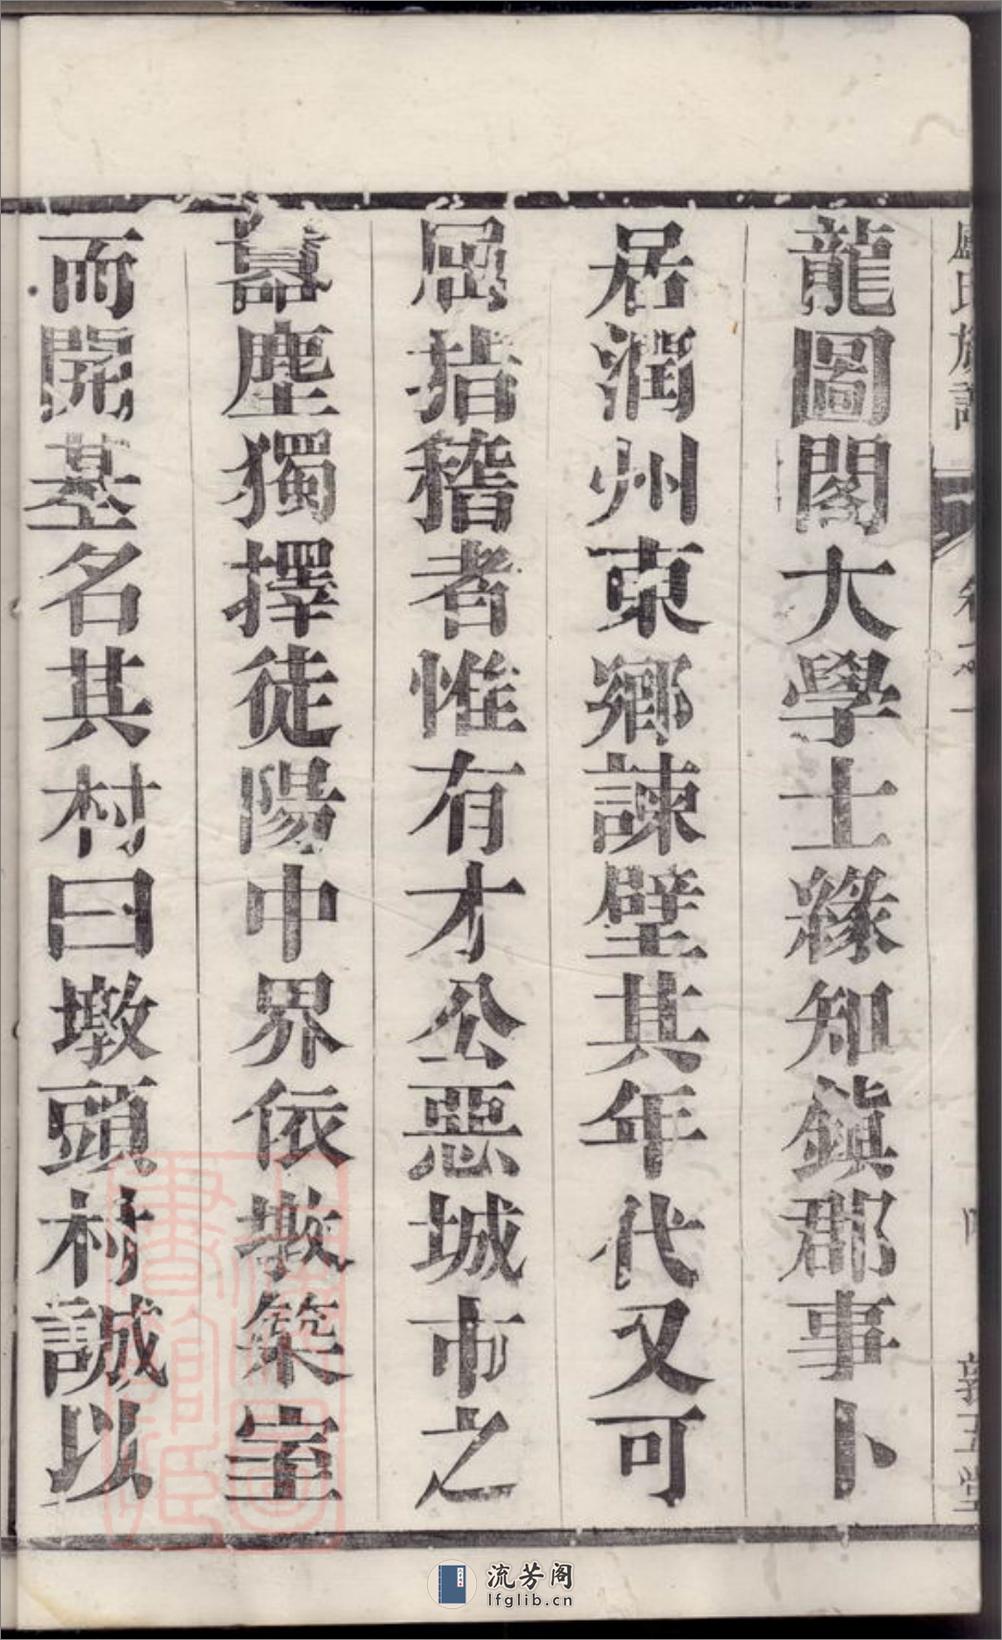 盧氏族譜
卷之一
敦五堂
龍圖閣大學士緣知鎮郡事卜
居潤州東鄉諫壁其年代又可
屈指稽者惟有才公惡城市之
囂塵獨擇徒陽中界依墩築室
而開基名其村曰墩頭村誠以
流芳阁
lfglib.cn